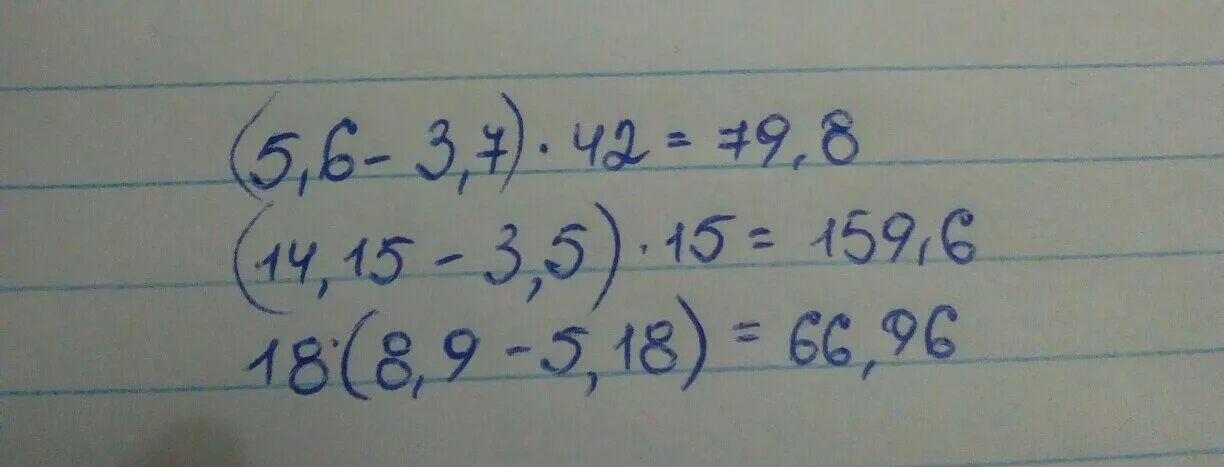 (5,6 - 3,7) · 42 = 79,8
(14,15 - 3,5) · 15 = 159,6
18·(8,9 - 5,18) = 66,96